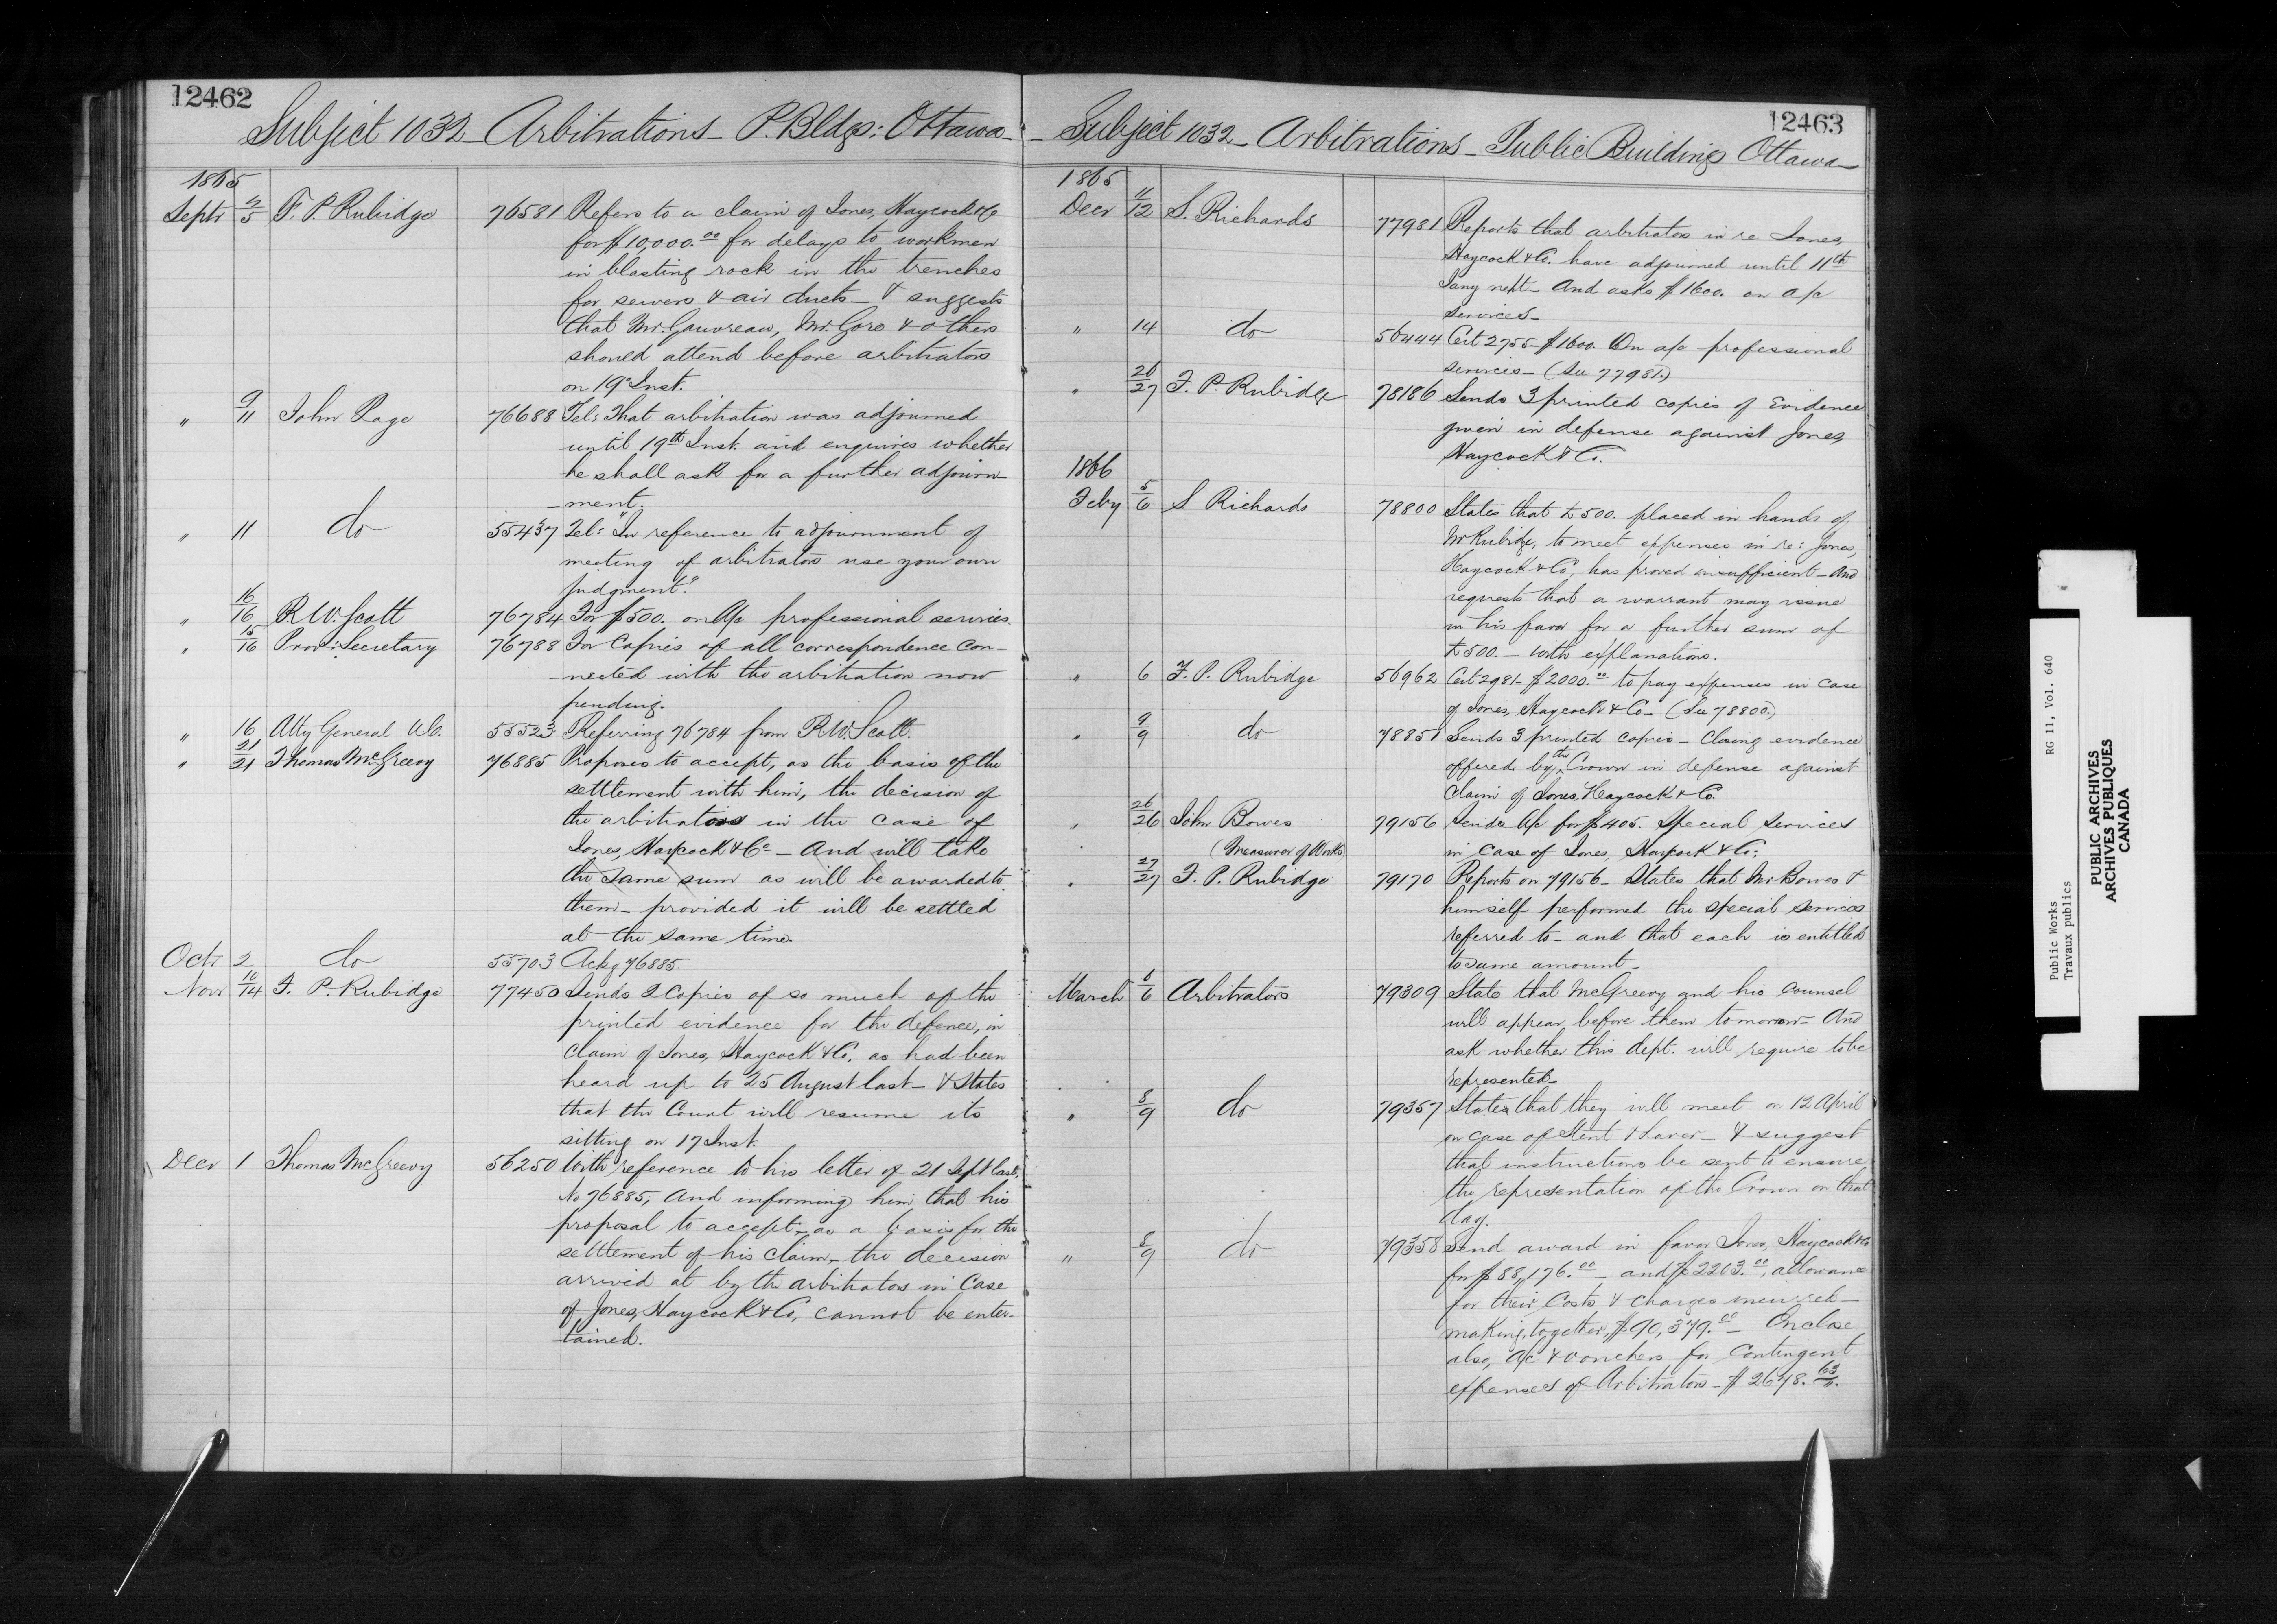 12462
Subject 1032 - Arbitrations - P. Bldgs: Ottawa -
1865
Septr 2/5 F. P. Rubidge 76581 Refers to a claim of Jones, Haycock & Co
for $10,000.00 for delays to workmen
in blasting rock in the trenches
for sewers & air ducts - & suggests
that Mr. Gauvreau, Mr. Goro & others
should attend before arbitrators
on 19 Inst.
" 9/11 John Page 76688 Tel: That arbitration was adjourned
until 19th Inst. and enquires whether
he shall ask for a further adjourn
-ment.
" 11 do 55437 Tel: "In reference to adjournment of
meeting of arbitrators use your own
judgment."
" 16/16 R. W. Scott 76784 For $500. on a/c professional services.
" 15/16 Prov: Secretary 76788 For Copies of all correspondence con-
-nected with the arbitration now
pending.
" 16 Atty General U.C. 55523 Referring 76784 from R. W. Scott.
" 21/21 Thomas McGreevy 76885 Proposes to accept, as the basis of the
settlement with him, the decision of
the arbitrators in the case of
Jones, Haycock & Co - And will take
the same sum as will be awarded to
them - provided it will be settled
at the same time.
Octr 2 do 55703 Ackg 76885.
Novr 10/14 F. P. Rubidge 77450 Sends 2 Copies of so much of the
printed evidence for the defence, in
claim of Jones, Haycock & Co. as had been
heard up to 25 August last - & States
that the Court will resume its
sitting on 17 Inst.
Decr 1 Thomas McGreevy 56250 With reference to his letter of 21 Sept last,
No 76885; And informing him that his
proposal to accept - as a basis for the
settlement of his claim - the decision
arrived at by the arbitrators in Case
of Jones, Haycock & Co, cannot be enter-
-tained.
12463
- Subject 1032 - Arbitrations - Public Buildings Ottawa -
1865
Decr 11/12 S. Richards 77981 Reports that arbitrators in re Jones,
Haycock & Co. have adjourned until 11th
Jany next - And asks $1600. on a/c
services -
" 14 do 56444 Cert 2755 - $1600. On a/c professional
services - (See 77981.)
" 26/27 F. P. Rubidge 78186 Sends 3 printed copies of Evidence
given in defense against Jones,
Haycock & Co.
1866
Feby 5/6 S Richards 78800 States that £500. placed in hands of
Mr Rubidge, to meet expenses in re: Jones,
Haycock & Co, has proved insufficient - And
requests that a warrant may issue
in his favor for a further sum of
£500. - with explanations.
" 6 F. P. Rubidge 56962 Cert 2981 - $2000.00 to pay expenses in case
of Jones, Haycock & Co - (See 78800.)
" 9/9 do 78851 Sends 3 printed copies - Closing evidence
offered by the Crown in defense against
Claim of Jones, Haycock & Co.
" 26/26 John Bowes 79156 Sends a/c for $405. Special Services
(Measurer of Works) in Case of Jones, Haycock & Co:
" 27/27 F. P. Rubidge 79170 Reports on 79156 - States that Mr Bowes &
himself performed the special services
referred to - and that each is entitled
to same amount -
March 6/6 Arbitrators 79309 State that McGreevy and his Counsel
will appear before them tomorrow - And
ask whether this dept. will require to be
represented -
" 8/9 do 79357 States that they will meet on 12 April
on case of Stent & Laver - & suggest
that instructions be sent to ensure
the representation of the Crown on that
day.
" 8/9 do 79358 Send award in favor Jones, Haycock & Co
for $88,176.00 - and $2203.00, allowance
for their Costs & charges incurred -
making, together, $90,379.00 - Enclose
also, a/c & vouchers for Contingent
expenses of Arbitrators - $2678.63.
Public Works RG 11, Vol. 640
Travaux publics
PUBLIC ARCHIVES
ARCHIVES PUBLIQUES
CANADA